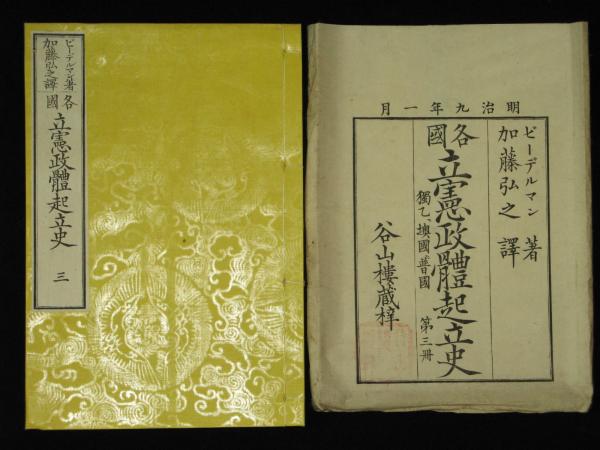 ビーデルマン著
加藤弘之譯
各國
立憲政體起立史
三
明治九年一月
ビーデルマン 著
加藤弘之 譯
各國
立憲政體起立史
獨乙、墺國普國 第三冊
谷山樓藏梓